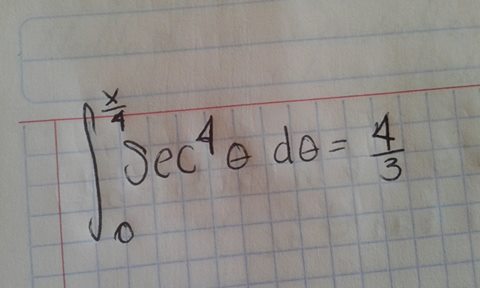 ∫₀^(x/4) sec⁴ θ dθ = 4/3